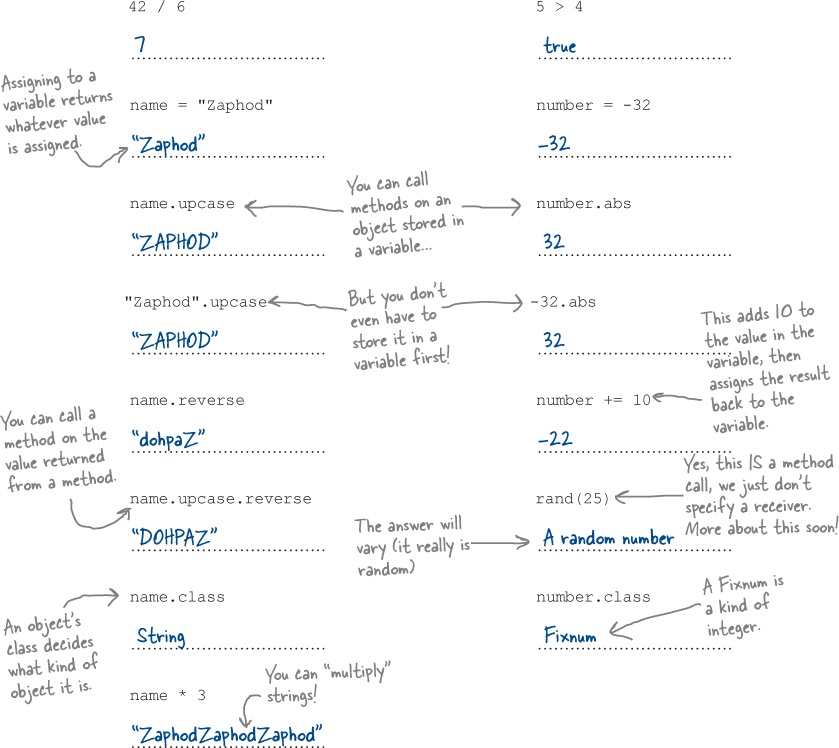 42 / 6
7
5 > 4
true
Assigning to a
variable returns
whatever value
is assigned.
name = "Zaphod"
“Zaphod”
number = -32
-32
name.upcase
“ZAPHOD”
You can call
methods on an
object stored in
a variable...
number.abs
32
"Zaphod".upcase
“ZAPHOD”
But you don't
even have to
store it in a
variable first!
-32.abs
32
This adds 10 to
the value in the
variable, then
assigns the result
back to the
variable.
name.reverse
“dohpaZ”
number += 10
-22
You can call a
method on the
value returned
from a method.
name.upcase.reverse
“DOHPAZ”
The answer will
vary (it really is
random)
rand(25)
A random number
Yes, this IS a method
call, we just don't
specify a receiver.
More about this soon!
An object's
class decides
what kind of
object it is.
name.class
String
number.class
Fixnum
A Fixnum is
a kind of
integer.
name * 3
“ZaphodZaphodZaphod”
You can “multiply”
strings!